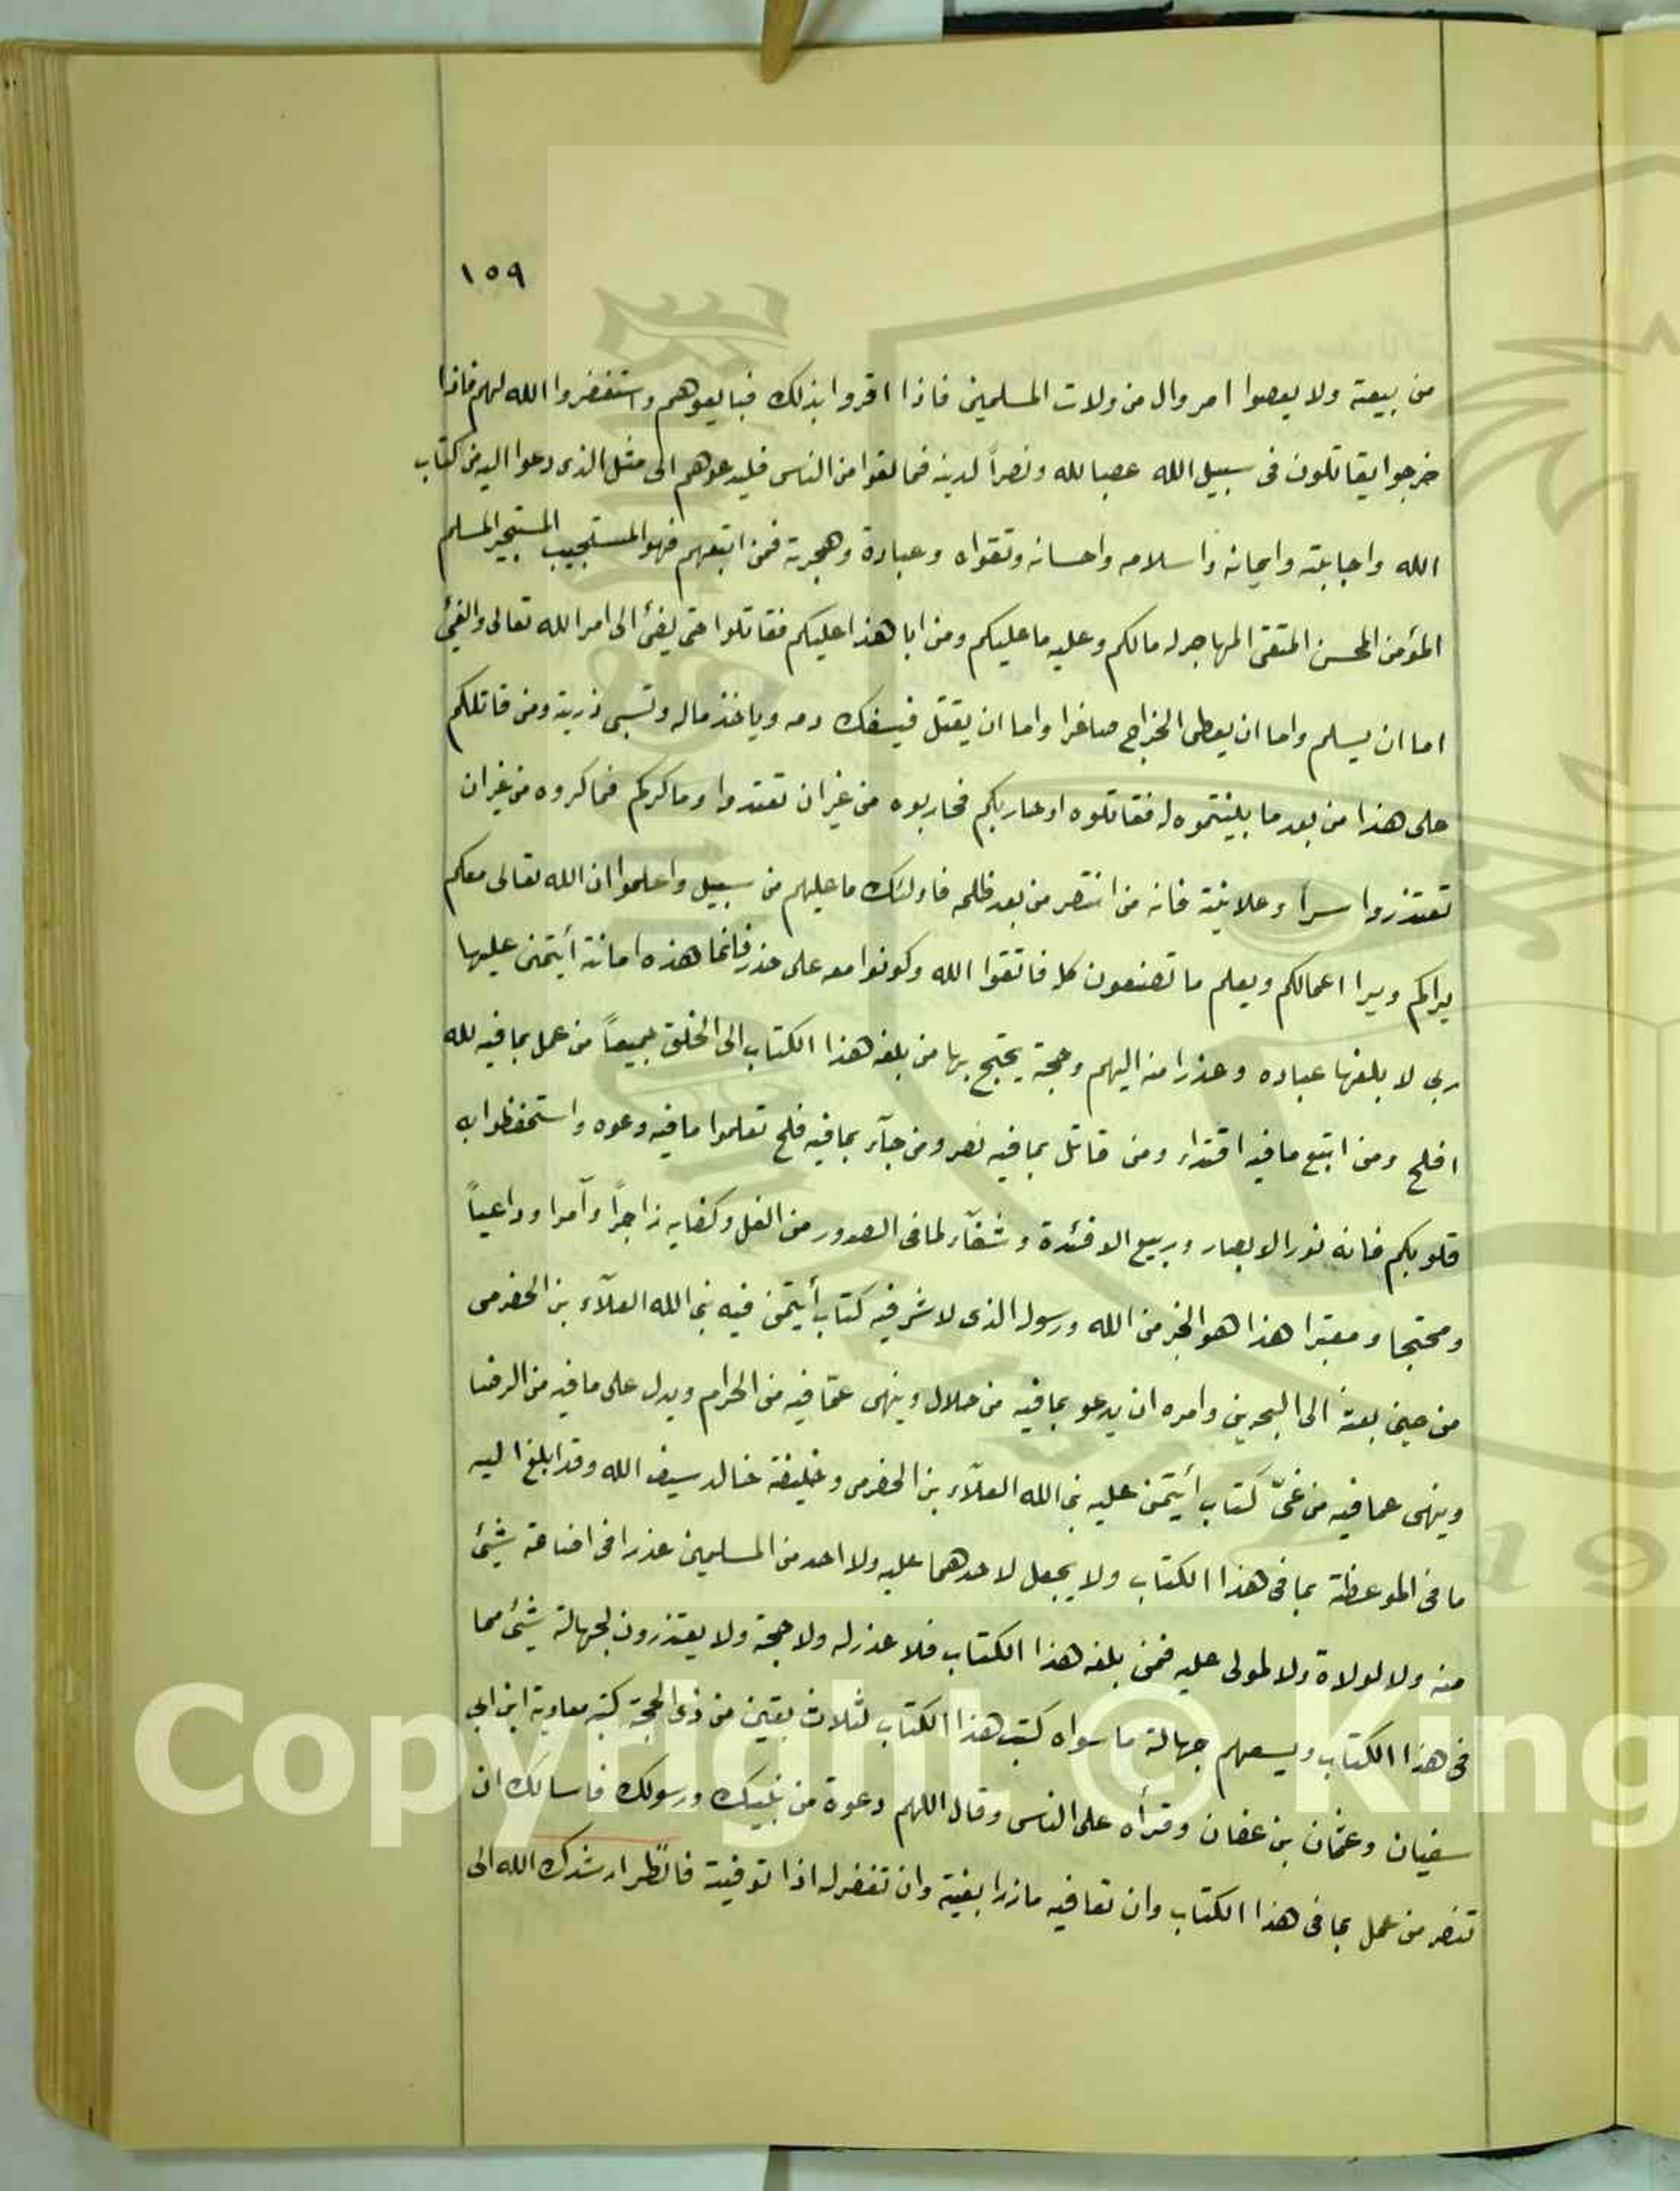 ١٥٩
من بيعة ولا يعصوا امر وال من ولات المسلمين فاذا اقروا بذلك فبايعوهم واستغفروا الله لهم فاذا
خرجوا يقاتلون فى سبيل الله عصبا لله ونصراً لدينه فما لقوا من الناس فليدعوهم الى مثل الذى دعوا اليه من كتاب
الله واجابته وايمانه واسلامه واحسانه وتقواه وعبادة وهجرته فمن اتبعهم فهو المستجيب المستجير المسلم
المؤمن المحسن المتقى المهاجر له مالكم وعليه ما عليكم ومن ابا هذا عليكم فقاتلوا حتى يفئ الى امر الله تعالى والفئ
اما ان يسلم واما ان يعطى الخراج صاغرا واما ان يقتل فيسفك دمه وياخذ ماله وتسبى ذريته ومن قاتلكم
على هذا من بعد ما بلغتموه له فقاتلوه او حاربكم فحاربوه من غير ان تعتدوا وماكركم فماكروه من غير ان
تعتذروا سراً وعلانية فانه من انتصر من بعد ظلمه فاولئك ما عليهم من سبيل واعلموا ان الله تعالى معكم
يراكم ويرا اعمالكم ويعلم ما تصنعون كله فاتقوا الله وكونوا معه على حذر فانما هذه امانة أيتمنى عليها
ربى لا بلغها عباده وعذرا منه اليهم وحجة يحتج بها من بلغه هذا الكتاب الى الخلق جميعاً من عمل بما فيه لله
افلح ومن اتبع ما فيه اقتداء ومن قاتل بما فيه نصر ومن جآء بما فيه فلح تعلموا ما فيه وعوه واستحفظوا به
قلوبكم فانه نور الابصار وربيع الافئدة وشفآء لما فى الصدور من الغل وكفا به زاجراً وآمرا وداعياً
ومحتجا ومعتبرا هذا هو الخير من الله ورسوله الذى لا شر فيه كتاب أيتمن فيه نبى الله العلآء بن الحضرمى
من حين بعثه الى البحرين وامره ان يدعو بما فيه من حلال وينهى عمّا فيه من الحرام ويدل على ما فيه من الرضا
وينهى عما فيه من غىّ كتاب أيتمن عليه نبى الله العلآء بن الحضرمى وخليفة خالد سيف الله وقد ابلغ اليه
ما فى الموعظة بما فى هذا الكتاب ولا يجعل لاحدهما عليه ولا احد من المسلمين عذرا فى اضاعة شيئ
منه ولا لولاة ولا لمولى عليه فمن بلغه هذا الكتاب فلا عذر له ولا حجة ولا يعتذرون لجهالة شيئ مما
فى هذا الكتاب ويسعهم جهالة ما سواه كتب هذا الكتاب لثلاث بقين من ذى الحجة كتبه معاوية ابن ابى
سفيان وعثمان بن عفان وقرأه على الناس وقال اللهم دعوة من نبيك ورسولك فاسالك ان
تنصر من عمل بما فى هذا الكتاب وان تعافيه وان تغفر له اذا توفيته فانظر ارشدك الله الى